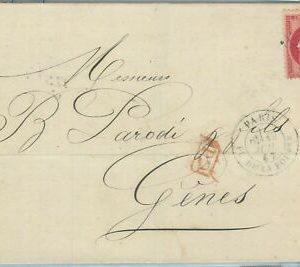 Messieurs
B Parodi & fils
Gênes
PARIS